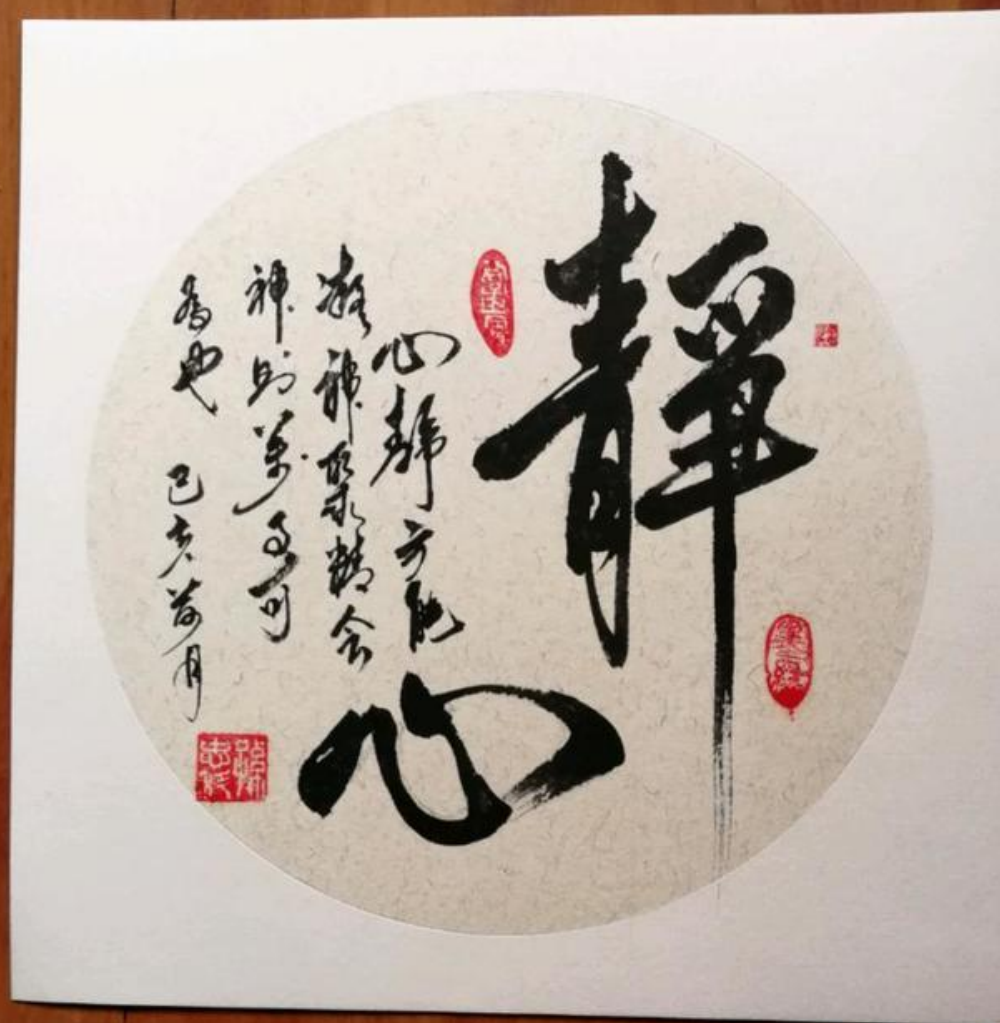 靜心
心靜方能
凝神聚精會
神則萬事可
為也 己亥荷月